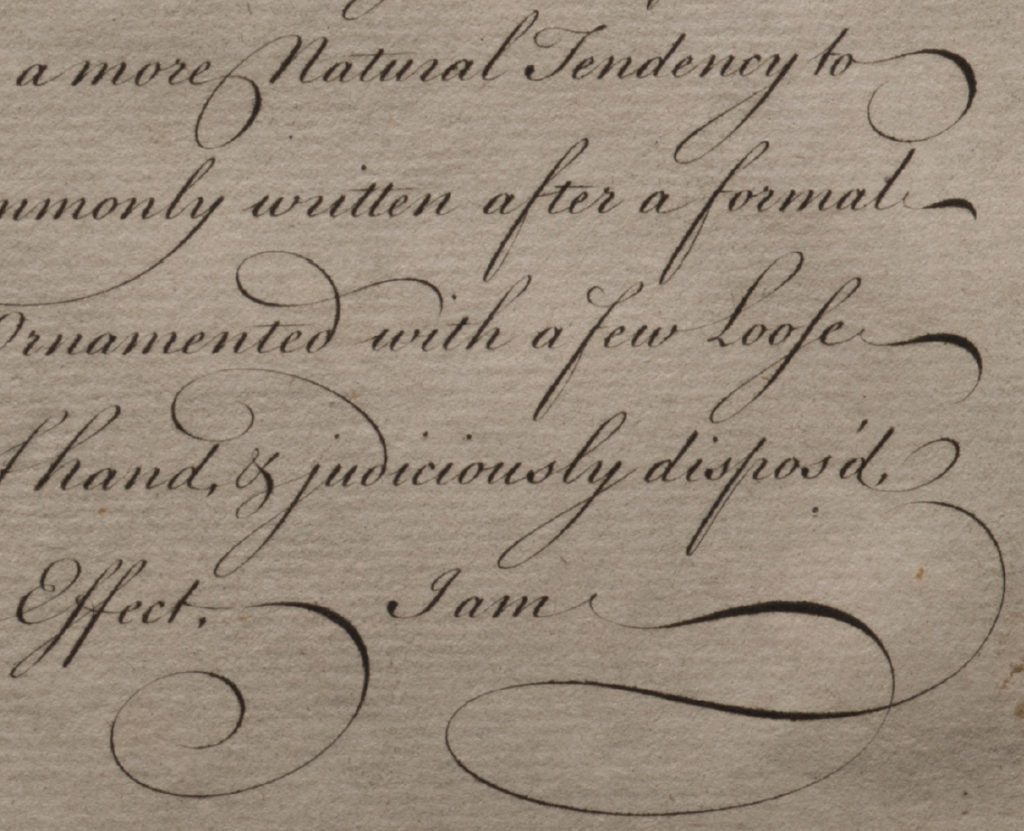 a more Natural Tendency to
mmonly written after a formal
Ornamented with a few Looſe
f hand, & judiciously dispos'd,
Effect. I am